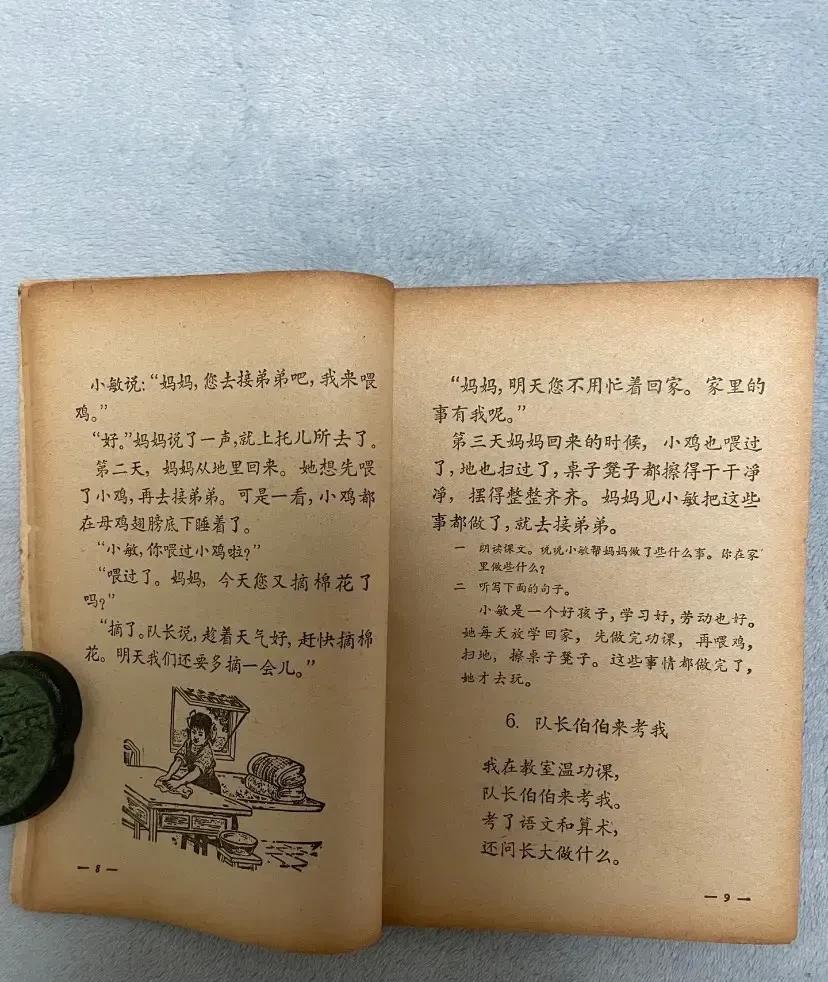 小敏说：“妈妈，您去接弟弟吧，我来喂
鸡。”
“好。”妈妈说了一声，就上托儿所去了。
第二天，妈妈从地里回来。她想先喂
了小鸡，再去接弟弟。可是一看，小鸡都
在母鸡翅膀底下睡着了。
“小敏，你喂过小鸡啦？”
“喂过了。妈妈，今天您又摘棉花了
吗？”
“摘了。队长说，趁着天气好，赶快摘棉
花。明天我们还要多摘一会儿。”
— 8 —
“妈妈，明天您不用忙着回家。家里的
事有我呢。”
第三天妈妈回来的时候，小鸡也喂过
了，地也扫过了，桌子凳子都擦得干干净
净，摆得整整齐齐。妈妈见小敏把这些
事都做了，就去接弟弟。
一 朗读课文。说说小敏帮妈妈做了些什么事。你在家
里做些什么？
二 听写下面的句子。
小敏是一个好孩子，学习好，劳动也好。
她每天放学回家，先做完功课，再喂鸡，
扫地，擦桌子凳子。这些事情都做完了，
她才去玩。
6. 队长伯伯来考我
我在教室温功课，
队长伯伯来考我。
考了语文和算术，
还问长大做什么。
— 9 —